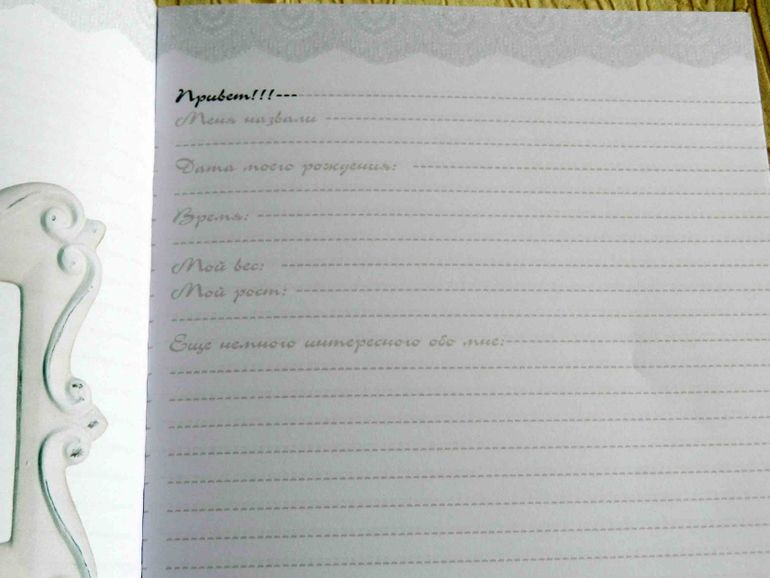 Привет!!!---
Меня назвали
Дата моего рождения:
Время:
Мой вес:
Мой рост:
Еще немного интересного обо мне: